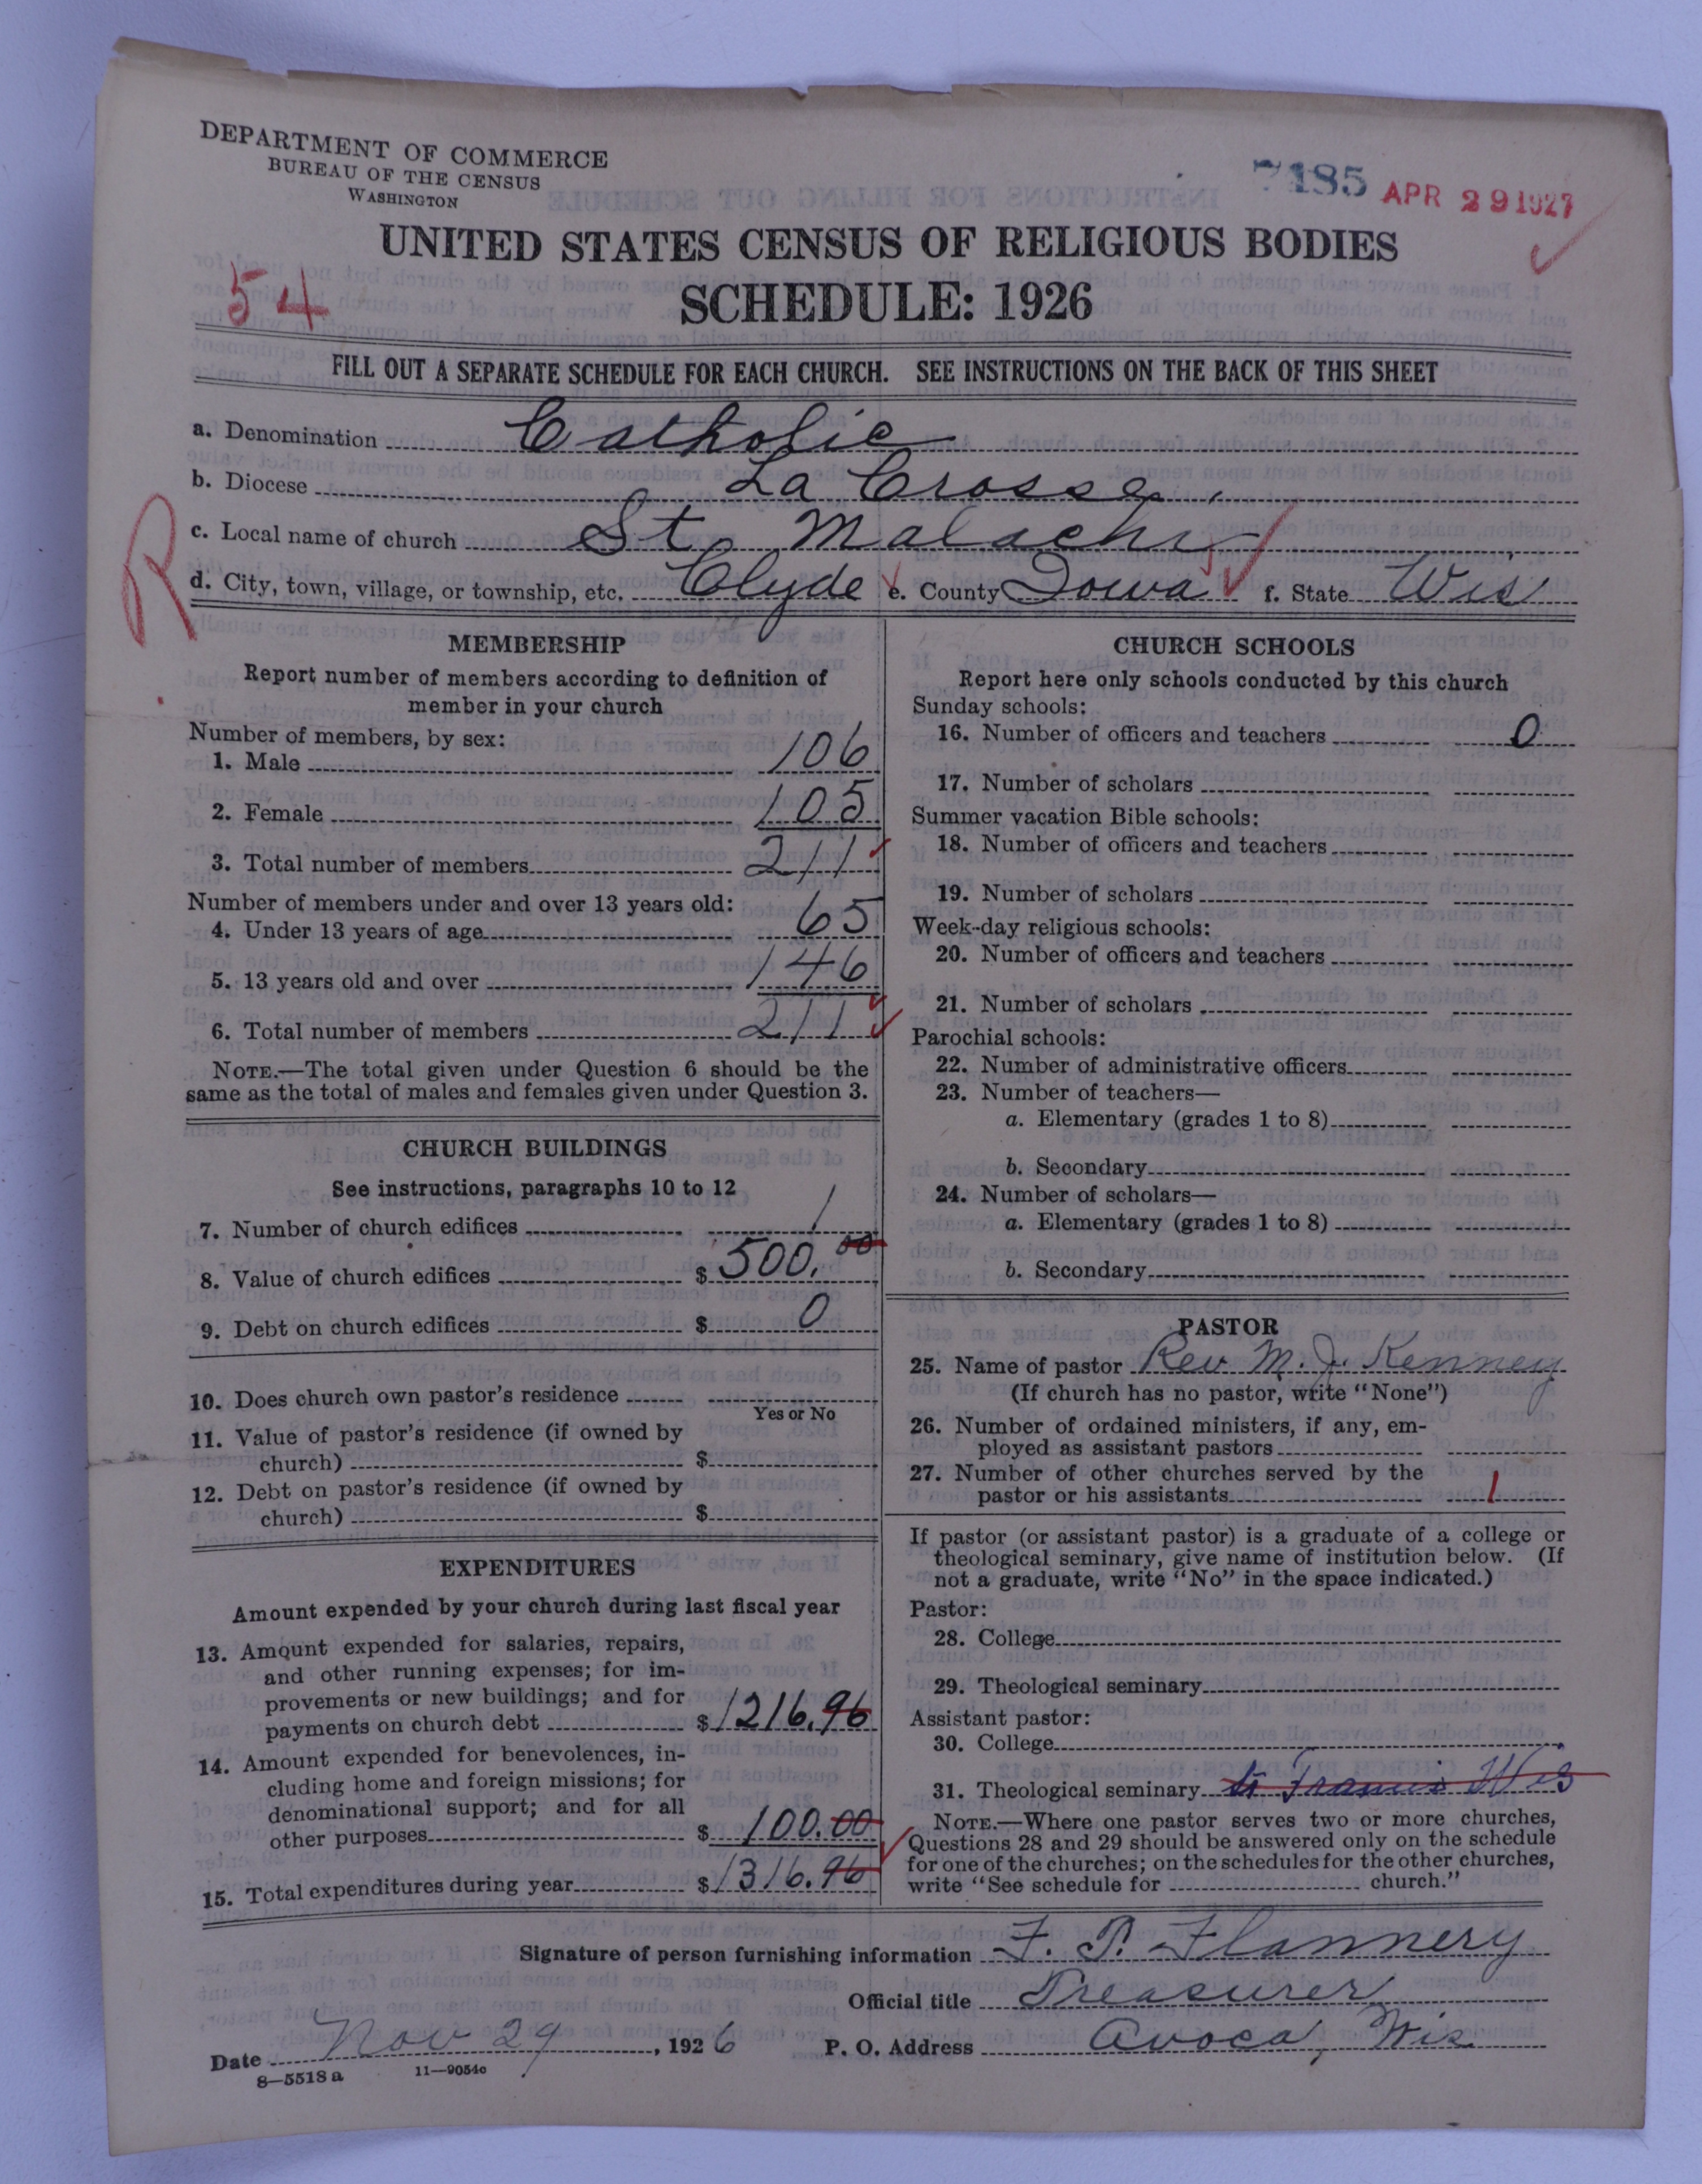 DEPARTMENT OF COMMERCE
BUREAU OF THE CENSUS
WASHINGTON
7185 APR 29 1927
UNITED STATES CENSUS OF RELIGIOUS BODIES
54
SCHEDULE: 1926
FILL OUT A SEPARATE SCHEDULE FOR EACH CHURCH. SEE INSTRUCTIONS ON THE BACK OF THIS SHEET
a. Denomination Catholic
b. Diocese La Crosse
c. Local name of church St Malachi
R
d. City, town, village, or township, etc. Clyde e. County Iowa f. State Wis
MEMBERSHIP
Report number of members according to definition of
member in your church
Number of members, by sex:
1. Male 106
2. Female 105
3. Total number of members 211
Number of members under and over 13 years old:
4. Under 13 years of age 65
5. 13 years old and over 146
6. Total number of members 211
NOTE.—The total given under Question 6 should be the
same as the total of males and females given under Question 3.
CHURCH BUILDINGS
See instructions, paragraphs 10 to 12
7. Number of church edifices 1
8. Value of church edifices $ 500.00
9. Debt on church edifices $ 0
10. Does church own pastor's residence
Yes or No
11. Value of pastor's residence (if owned by
church) $
12. Debt on pastor's residence (if owned by
church) $
EXPENDITURES
Amount expended by your church during last fiscal year
13. Amount expended for salaries, repairs,
and other running expenses; for im-
provements or new buildings; and for
payments on church debt $ 1216.96
14. Amount expended for benevolences, in-
cluding home and foreign missions; for
denominational support; and for all
other purposes $ 100.00
15. Total expenditures during year $ 1316.96
CHURCH SCHOOLS
Report here only schools conducted by this church
Sunday schools:
16. Number of officers and teachers 0
17. Number of scholars
Summer vacation Bible schools:
18. Number of officers and teachers
19. Number of scholars
Week-day religious schools:
20. Number of officers and teachers
21. Number of scholars
Parochial schools:
22. Number of administrative officers
23. Number of teachers—
a. Elementary (grades 1 to 8)
b. Secondary
24. Number of scholars—
a. Elementary (grades 1 to 8)
b. Secondary
PASTOR
25. Name of pastor Rev. M. J. Kenney
(If church has no pastor, write "None")
26. Number of ordained ministers, if any, em-
ployed as assistant pastors
27. Number of other churches served by the
pastor or his assistants 1
If pastor (or assistant pastor) is a graduate of a college or
theological seminary, give name of institution below. (If
not a graduate, write "No" in the space indicated.)
Pastor:
28. College
29. Theological seminary
Assistant pastor:
30. College
31. Theological seminary St Francis Wis
NOTE.—Where one pastor serves two or more churches,
Questions 28 and 29 should be answered only on the schedule
for one of the churches; on the schedules for the other churches,
write "See schedule for church."
Signature of person furnishing information F. P. Flannery
Official title Treasurer
Date Nov 29, 1926 P. O. Address Avoca, Wis
8—5518 a 11—9054c